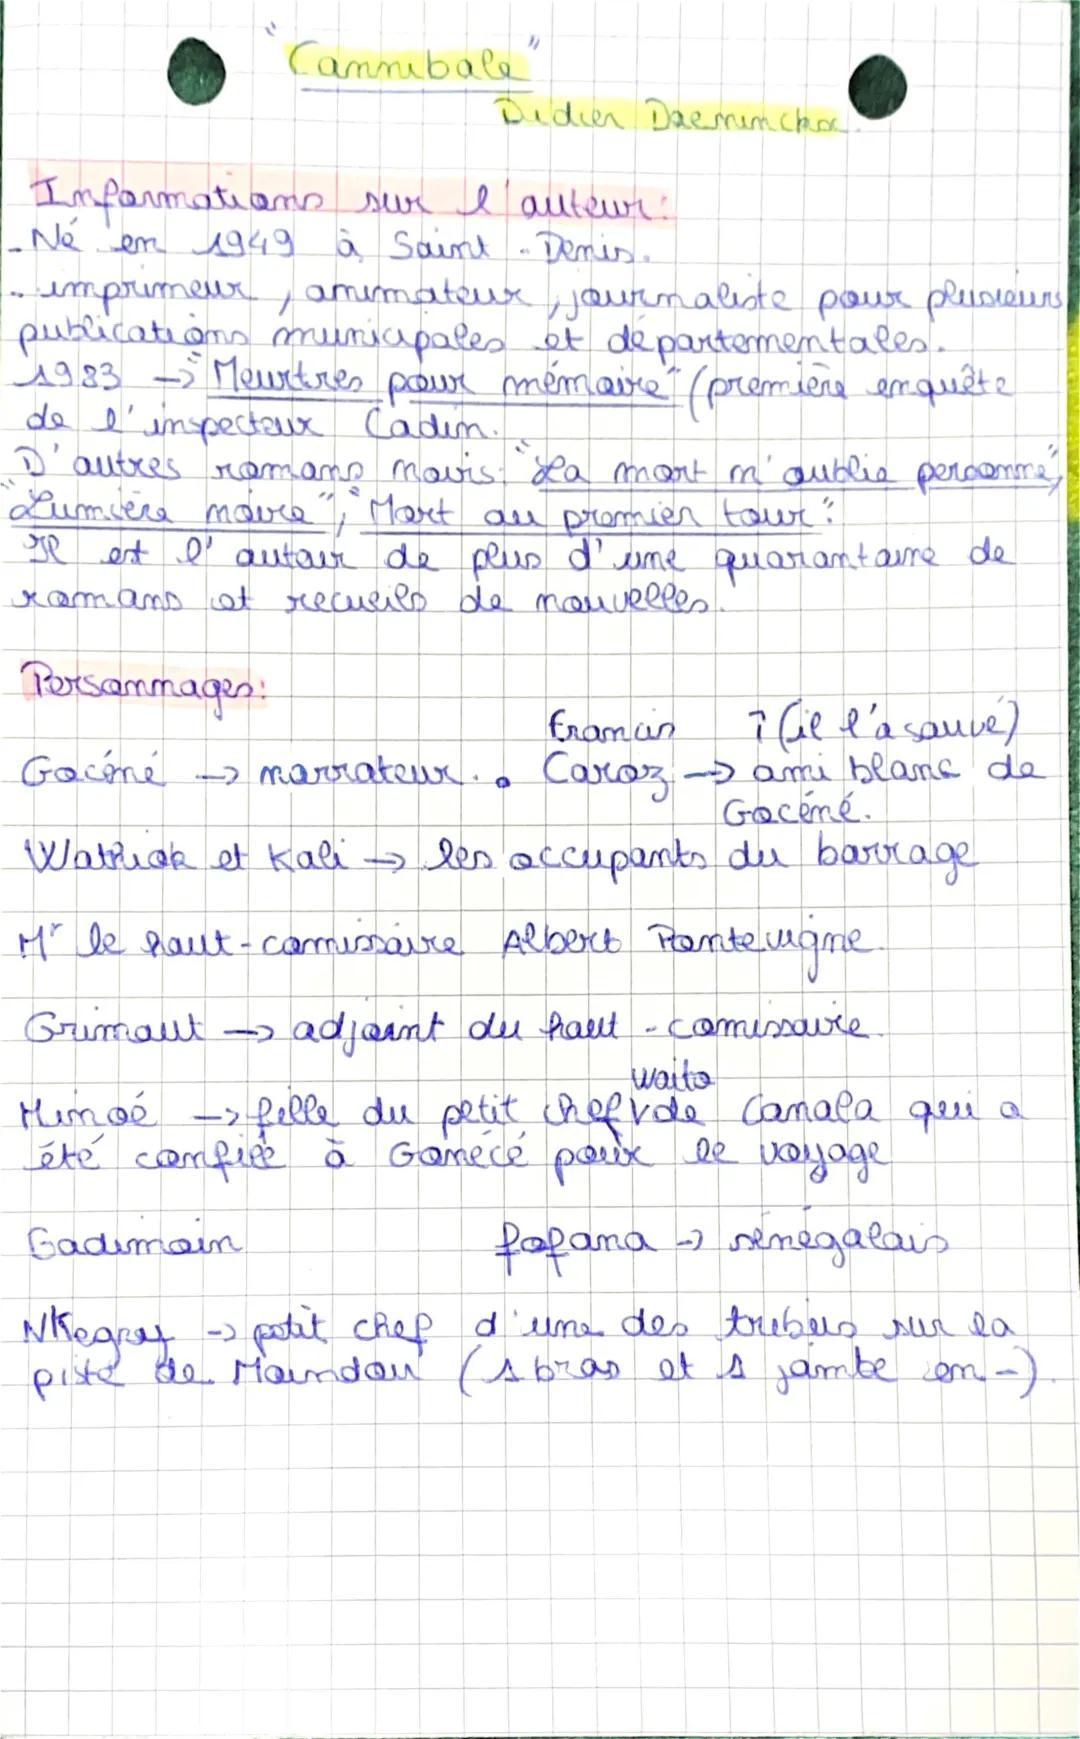 "Cannibale"
Didier Daeninckx.
Informations sur l'auteur:
- Né en 1949 à Saint-Denis.
- imprimeur, animateur, journaliste pour plusieurs
publications municipales et départementales.
1983 → "Meurtres pour mémoire" (première enquête
de l'inspecteur Cadin.
D'autres romans noirs: "La mort n'oublie personne",
"Lumière noire", "Mort au premier tour".
Il est l'auteur de plus d'une quarantaine de
romans et recueils de nouvelles.
Personnages:
Francis ↑ (il l'a sauvé)
Gocéné → narrateur. • Caroz → ami blanc de
Gocéné.
Wathiok et Kali → les occupants du barrage
Mr le haut-comissaire Albert Pontevigne.
Grimaut → adjoint du haut-comissaire.
Waito
Minoé → fille du petit chef v de Canala qui a
été confiée à Gonécé pour le voyage
Badimoin fofana → sénégalais
Nkegny → petit chef d'une des tribus sur la
piste de Moindou (1 bras et 1 jambe en -).